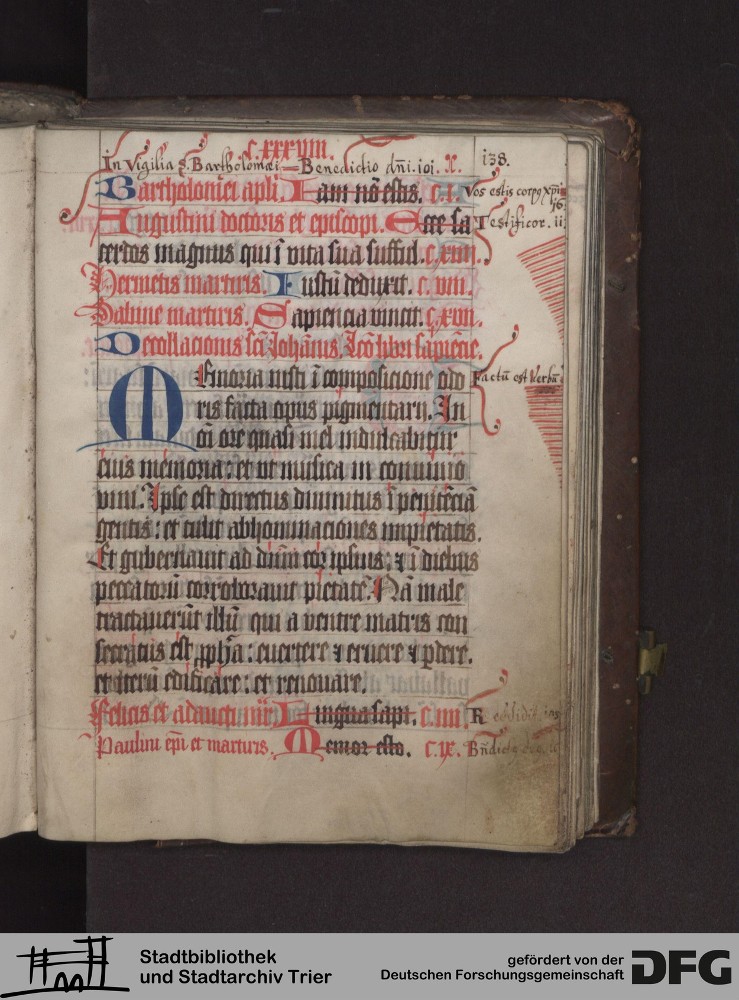 c.xxxviii.
In Vigilia s. Bartholomæi — Benedictio dñi. ioi. X. 138.
Bartholomei apli. Iam nō estis. c.i. Vos estis corpq xpi
Augustini doctoris et episcopi. Ecce sa Testificor. ii
cerdos magnus qui ī vita sua sufful. c.xiiii.
Hermetis martiris. Iustū deduxit. c.viii.
Sabine martiris. Sapiencia vincit. c.xvii.
Decollacionis sci Johānis. Lcō libri sapiēcie.
Memoria iusti ī composicione odo Factū est Verbū
ris facta opus pigmentarij. In
oī ore quasi mel indulcabitur
eius memoria: et ut musica in conuiuio
vini. Ipse est directus diuinitus ī penitēciā
gentis: et tulit abhominaciones impietatis.
Et gubernauit ad dnm cor ipsius: ⁊ ī diebus
peccatorū corroborauit pietatē. Nā male
tractauerūt illū qui a ventre matris con
secratus est ꝓpha: euertere ⁊ eruere ⁊ ꝑdere.
et iterū edificare: et renouare.
Felicis et adaucti mr̄. Lingua sapi. c.iiii. Reddidit
Paulini epi et martiris. Memor esto. c.ix. Bn̄dict
Stadtbibliothek
und Stadtarchiv Trier
gefördert von der
Deutschen Forschungsgemeinschaft
DFG